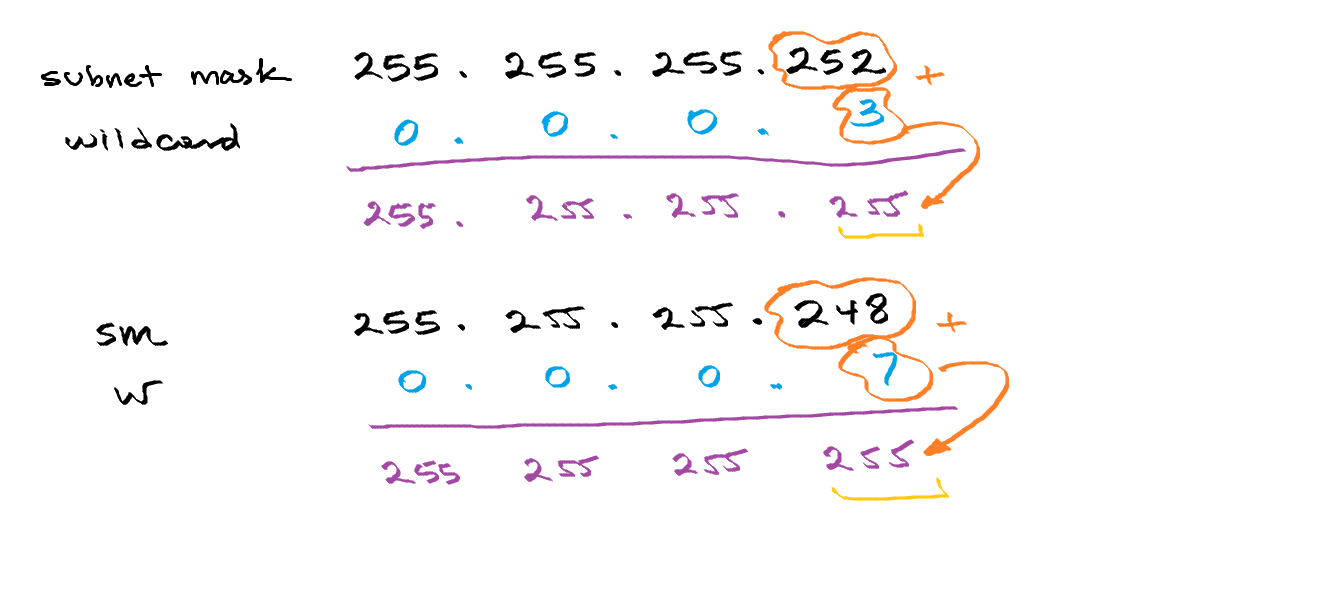 subnet mask 255. 255. 255. 252 +
wildcard 0. 0. 0. 3
255. 255. 255. 255
sm 255. 255. 255. 248 +
w 0. 0. 0. 7
255 255 255 255